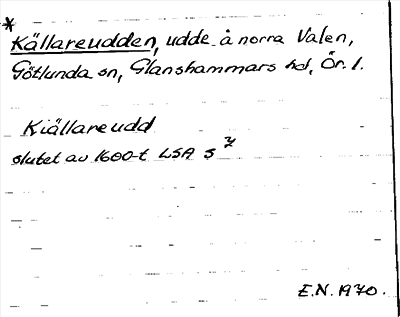 *
Källareudden, udde å norra Valen,
Götlunda sn, Glanshammars hd, Ör. l.
Kiällareudd
slutet av 1600-t LSA S 7
E.N. 1970.